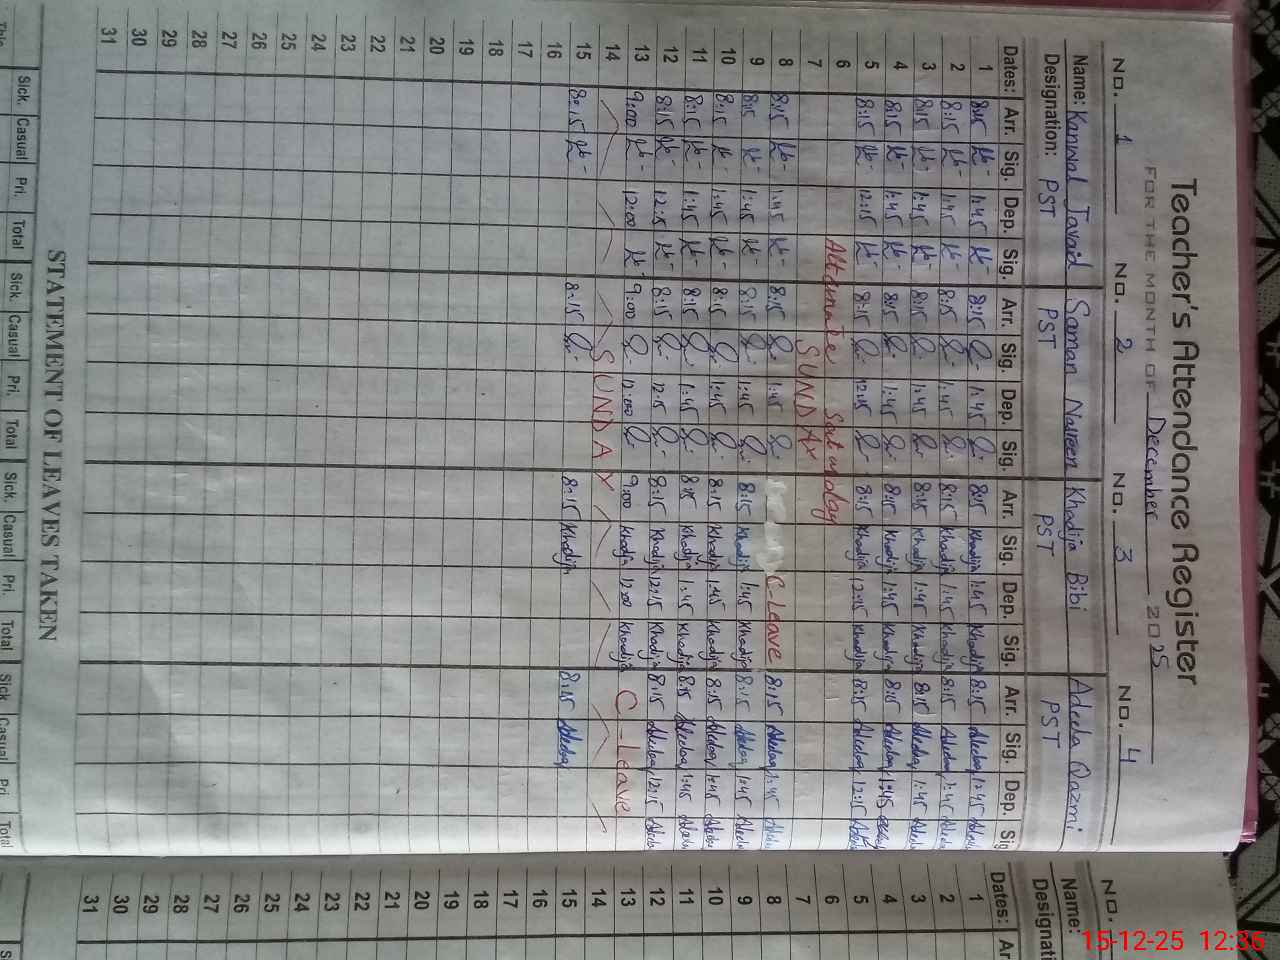 Teacher's Attendance Register
FOR THE MONTH OF December 2025
No. 1 No. 2 No. 3 No. 4
Name: Kanwal Javaid Saman Nasreen Khadija Bibi Adeeba Qazmi
Designation: PST PST PST PST
Dates: Arr. Sig. Dep. Sig. Arr. Sig. Dep. Sig. Arr. Sig. Dep. Sig. Arr. Sig. Dep. Sig
1 8:15 1:45 8:15 1:45 8:15 Khadija 1:45 Khadija 8:15 1:45
2 8:15 1:45 8:15 1:45 8:15 Khadija 1:45 Khadija 8:15 1:45
3 8:15 1:45 8:15 1:45 8:15 Khadija 1:45 Khadija 8:15 1:45
4 8:15 1:45 8:15 1:45 8:15 Khadija 1:45 Khadija 8:15 1:45
5 8:15 12:15 8:15 12:15 8:15 Khadija 12:15 Khadija 8:15 12:15
6 Alternate Saturday
7 SUNDAY
8 8:15 1:45 8:15 1:45 C-Leave 8:15 1:45
9 8:15 1:45 8:15 1:45 8:15 Khadija 1:45 Khadija 8:15 1:45
10 8:15 1:45 8:15 1:45 8:15 Khadija 1:45 Khadija 8:15 1:45
11 8:15 1:45 8:15 1:45 8:15 Khadija 1:45 Khadija 8:15 1:45
12 8:15 12:15 8:15 12:15 8:15 Khadija 12:15 Khadija 8:15 12:15
13 9:00 12:00 9:00 12:00 9:00 Khadija 12:00 Khadija C-Leave
14 SUNDAY
15 8:15 8:15 8:15 Khadija 8:15
16
17
18
19
20
21
22
23
24
25
26
27
28
29
30
31
STATEMENT OF LEAVES TAKEN
This Sick. Casual Pri. Total Sick. Casual Pri. Total Sick. Casual Pri. Total Sick Casual Pri Total
No.
Name:
Designati
Dates: Ar
1
2
3
4
5
6
7
8
9
10
11
12
13
14
15
16
17
18
19
20
21
22
23
24
25
26
27
28
29
30
31
15-12-25 12:36